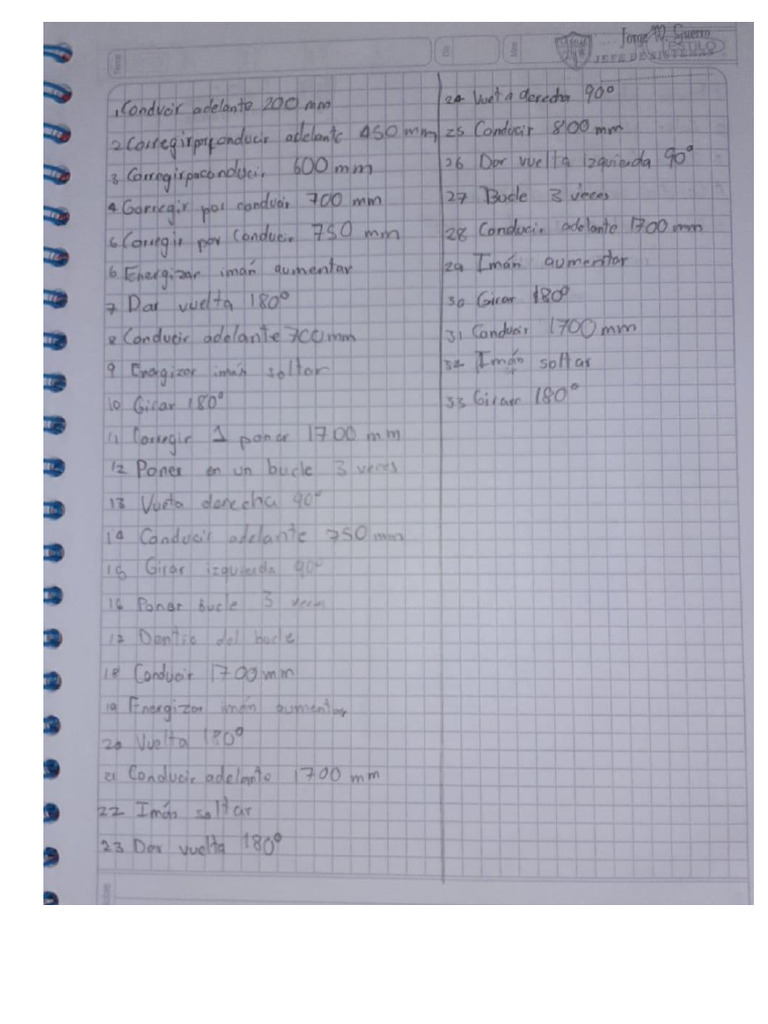 Jorge M. Guerro
JEFE DE SISTEMAS
1 Conducir adelante 200 mm
2 Corregir por conducir adelante 450 mm
3 Corregir pa conducir 600 mm
4 Corregir por conducir 700 mm
5 Corregir por conducir 750 mm
6 Energizar imán aumentar
7 Dar vuelta 180°
8 Conducir adelante 700 mm
9 Energizar imán soltar
10 Girar 180°
11 Corregir 1 poner 1700 mm
12 Poner en un bucle 3 veces
13 Vueta derecha 90°
14 Conducir adelante 750 mm
15 Girar izquierda 90°
16 Poner bucle 3 veces
17 Dentro del bucle
18 Conducir 1700 mm
19 Energizar imán aumentar
20 Vuelta 180°
21 Conducir adelante 1700 mm
22 Imán soltar
23 Dar vuelta 180°
24 Vueta derecha 90°
25 Conducir 800 mm
26 Dar vuelta Izquierda 90°
27 Bucle 3 veces
28 Conducir adelante 1700 mm
29 Imán aumentar
30 Girar 180°
31 Conducir 1700 mm
32 Imán soltar
33 Girar 180°